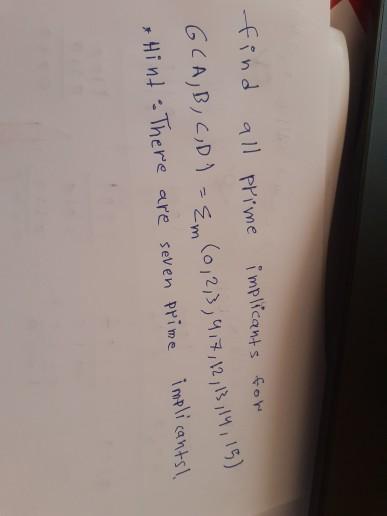 find all prime implicants for
G(A,B,C,D) = Σm (0,2,3,4,7,12,13,14,15)
* Hint: There are seven prime implicants!